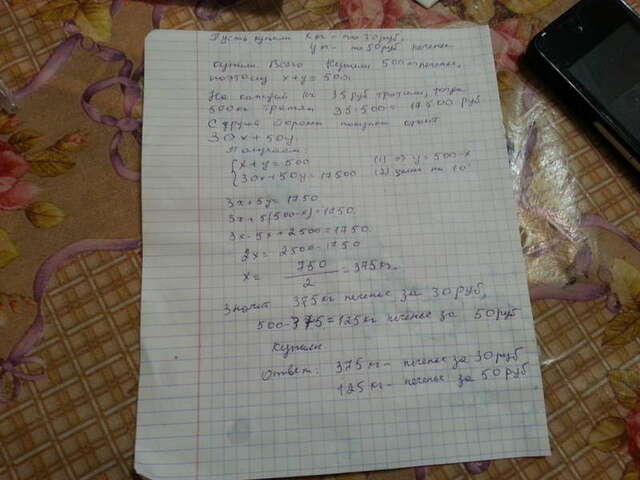 Пусть купили x кг - по 30 руб,
y кг - по 50 руб печенье
купили Всего Купили 500 кг печенье,
поэтому x+y=500.
На каждый кг 35 руб тратили, тогда
500 кг тратили 35·500= 17500 руб
С другой стороны покупка стоит
30x+50y.
Получаем
x+y=500 (1) => y=500-x
30x+50y=17500 (2) делим на 10
3x+5y=1750
3x+5(500-x)=1750
3x-5x+2500=1750
2x= 2500-1750
x= 750/2 =375кг.
Значит 375кг печенье за 30 руб,
500-375=125кг печенье за 50 руб
Купили
Ответ: 375кг- печенье за 30 руб
125кг- печенье за 50 руб